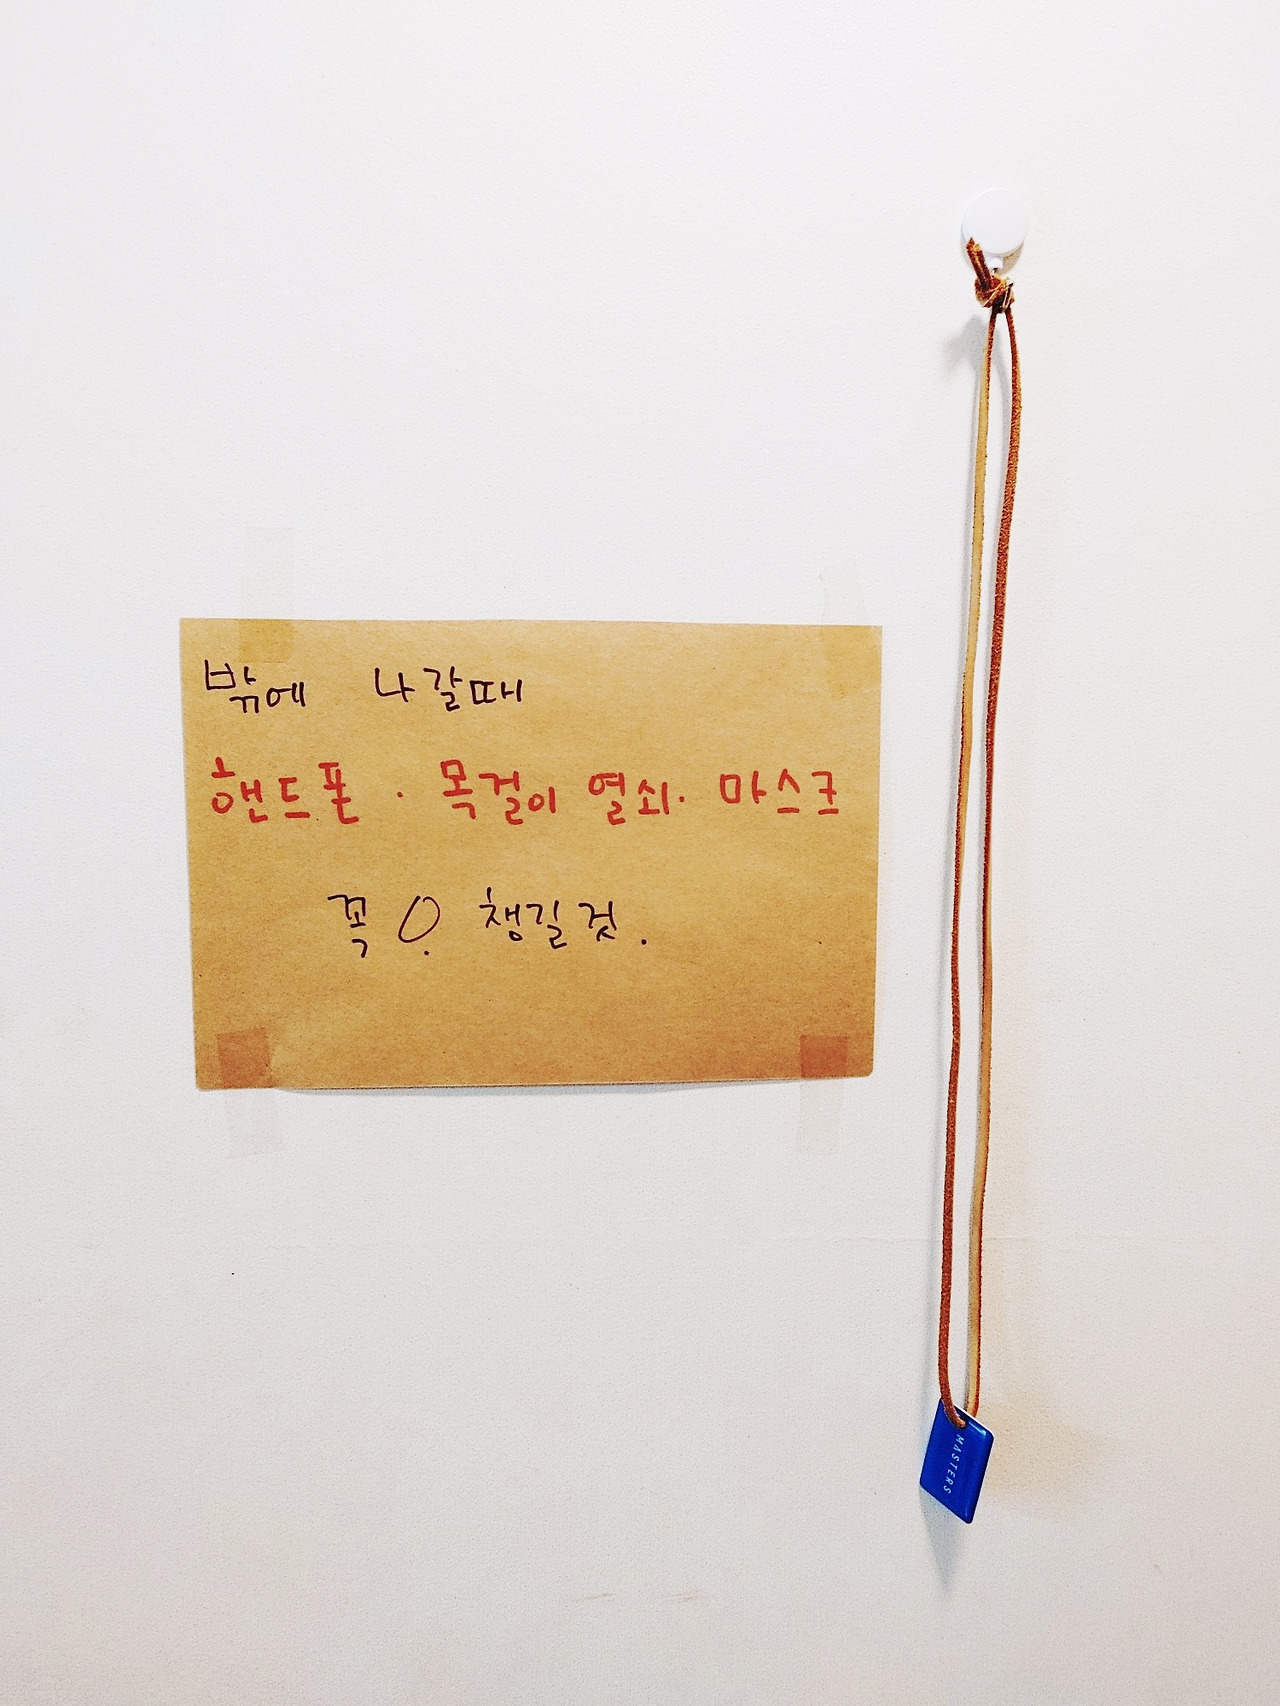 밖에 나갈때
핸드폰 · 목걸이 열쇠 · 마스크
꼭 ! 챙길것.
MASTERS